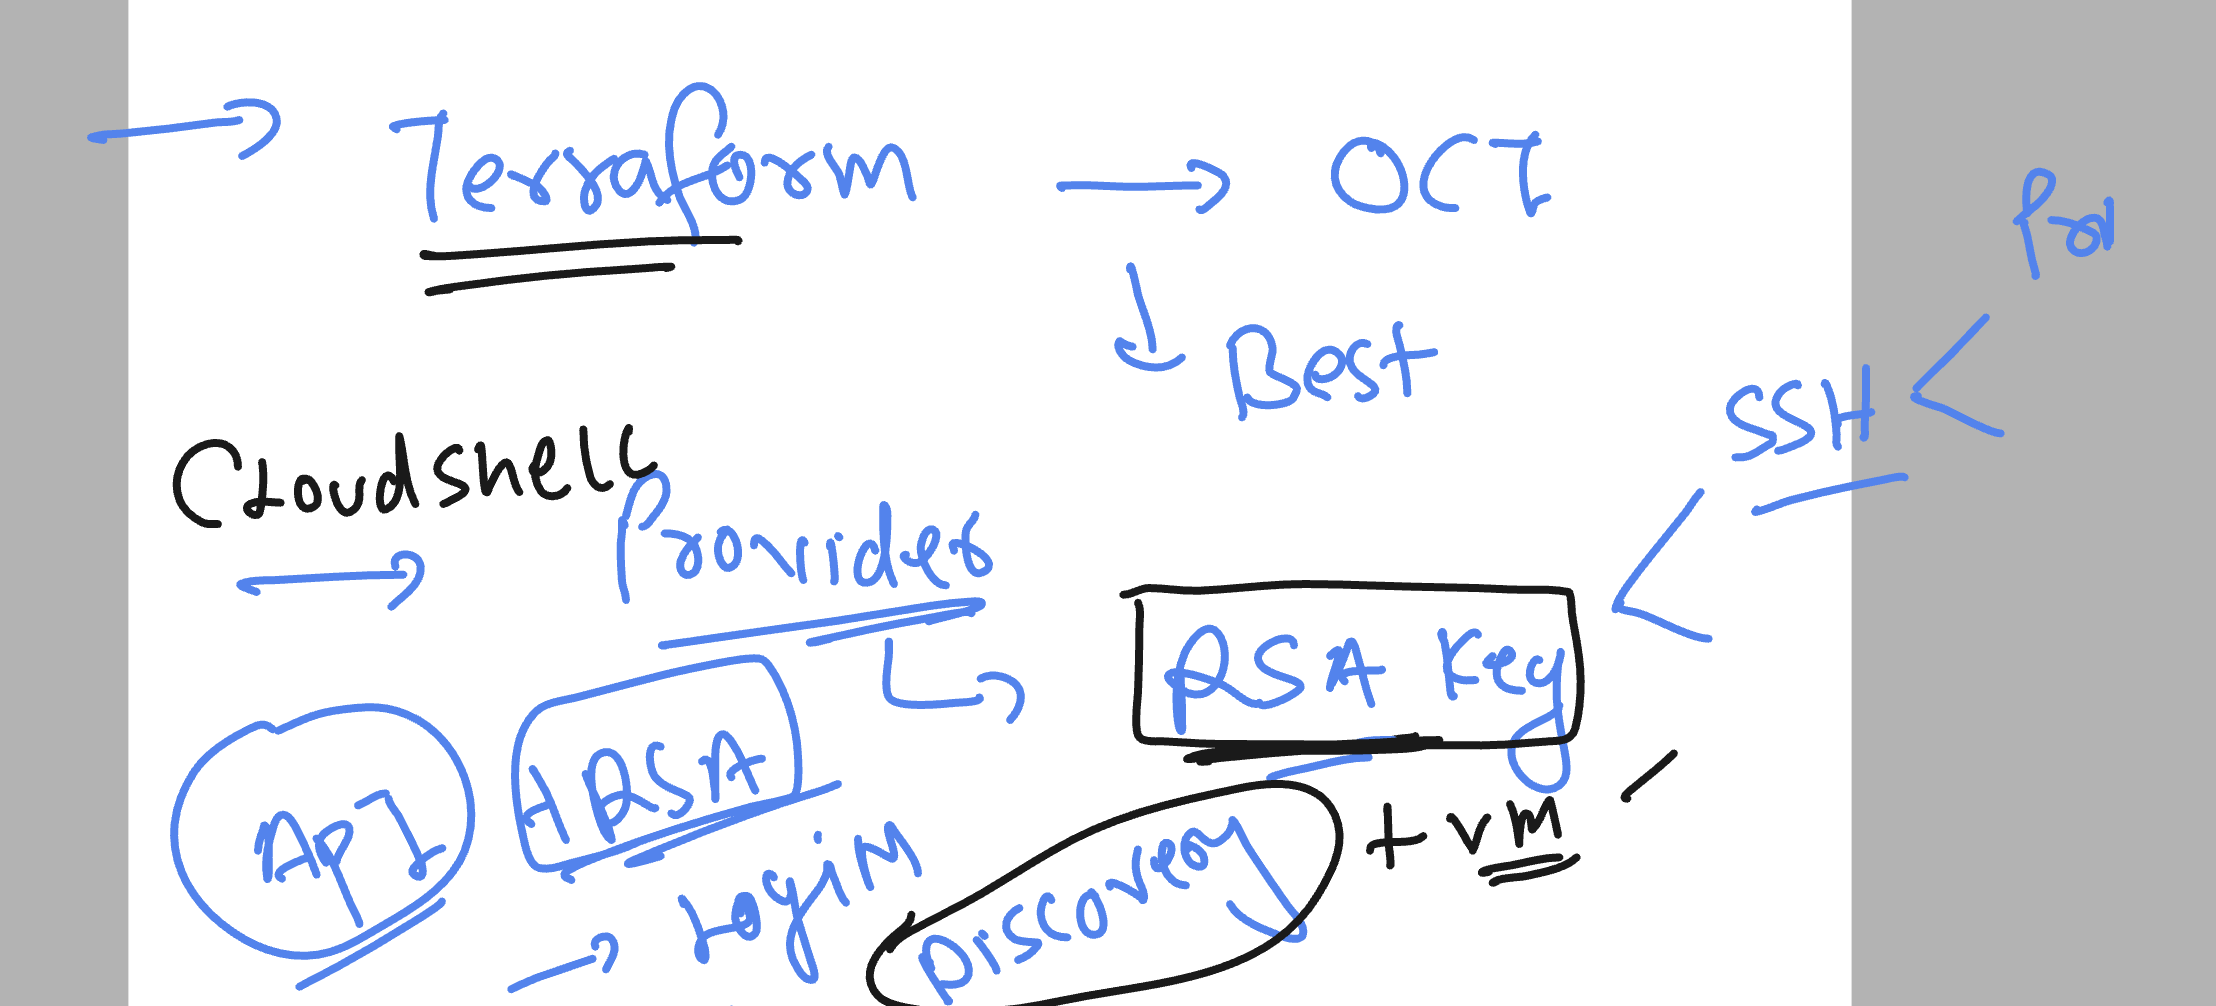 Terraform → OCI
Best
SSH
Cloudshell
Provider
RSA Key
API
+ RSA
+ VM
Login
Discovery